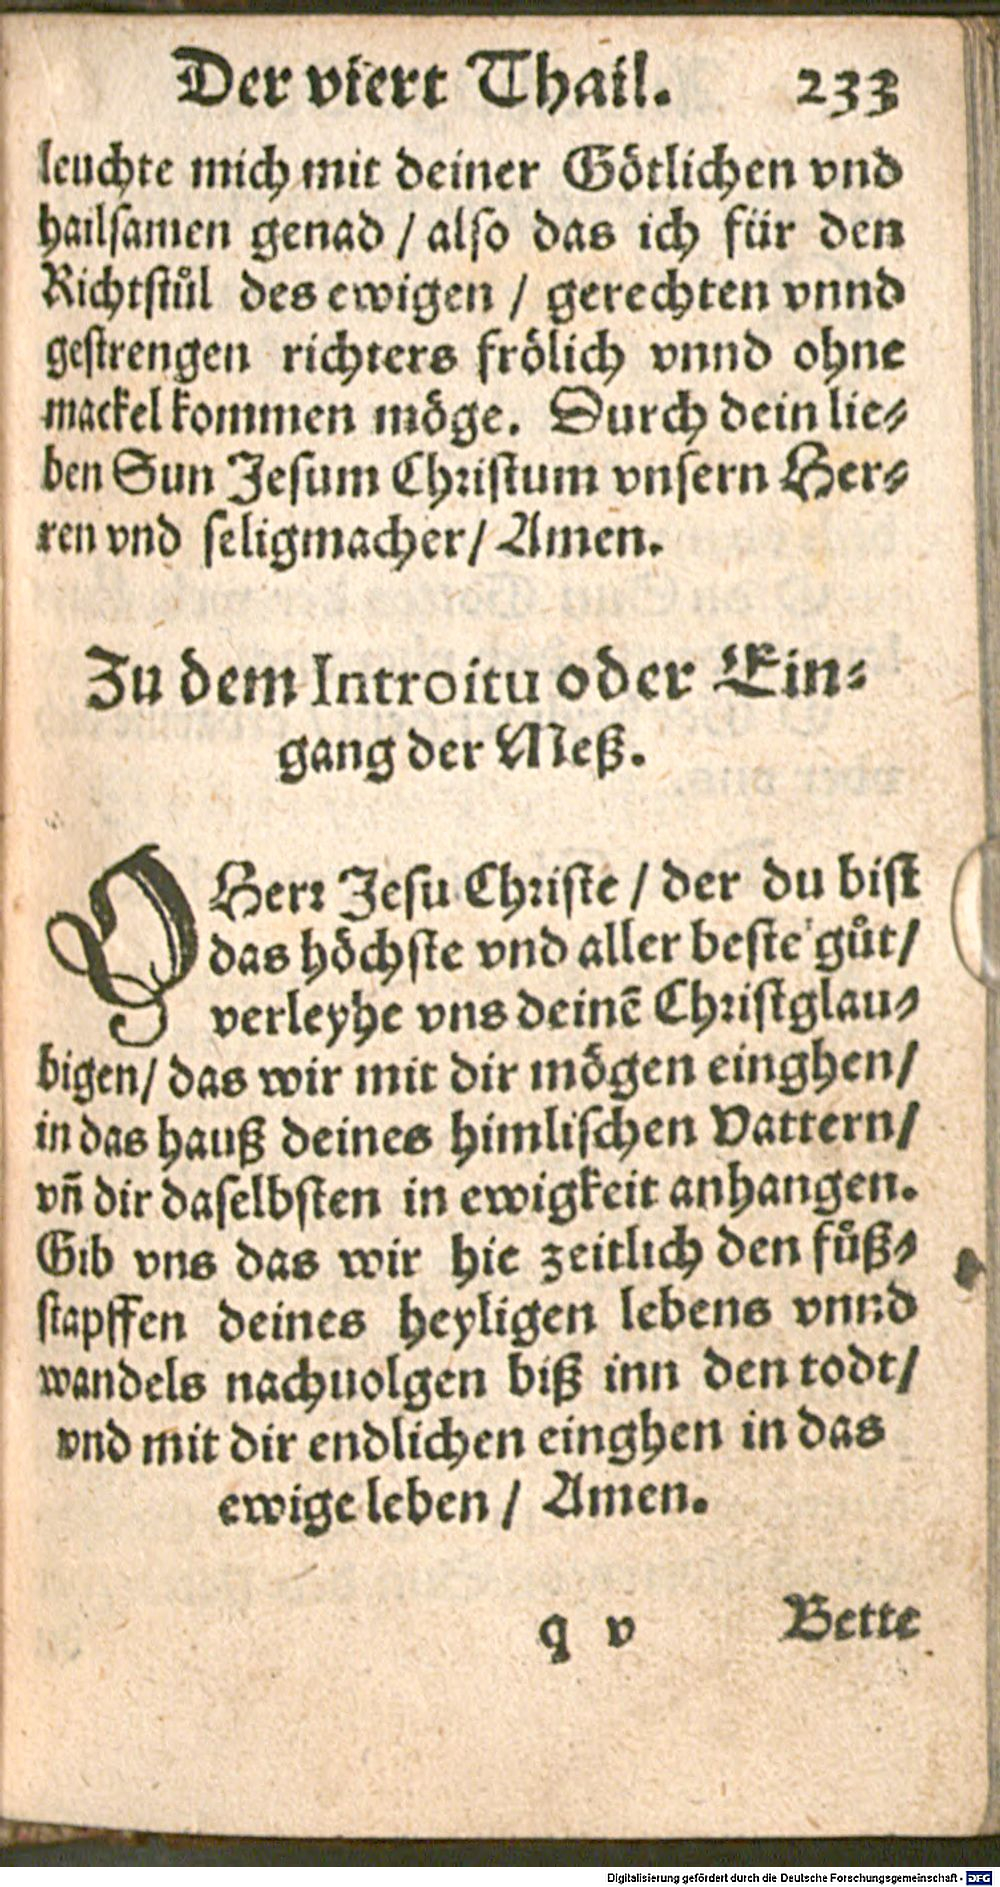 Der viert Thail. 233
leuchte mich mit deiner Götlichen vnd
hailsamen genad / also das ich für den
Richtstůl des ewigen / gerechten vnnd
gestrengen richters frölich vnnd ohne
mackel kommen möge. Durch dein lie⸗
ben Sun Jesum Christum vnsern Her⸗
ren vnd seligmacher / Amen.
Zu dem Introitu oder Ein⸗
gang der Meß.
O Herr Jesu Christe / der du bist
das höchste vnd aller beste gůt /
verleyhe vns deinē Christglau⸗
bigen / das wir mit dir mögen einghen /
in das hauß deines himlischen Vattern /
vñ dir daselbsten in ewigkeit anhangen.
Gib vns das wir hie zeitlich den fůß⸗
stapffen deines heyligen lebens vnnd
wandels nachuolgen biß inn den todt /
vnd mit dir endlichen einghen in das
ewige leben / Amen.
q v Bette
Digitalisierung gefördert durch die Deutsche Forschungsgemeinschaft - DFG